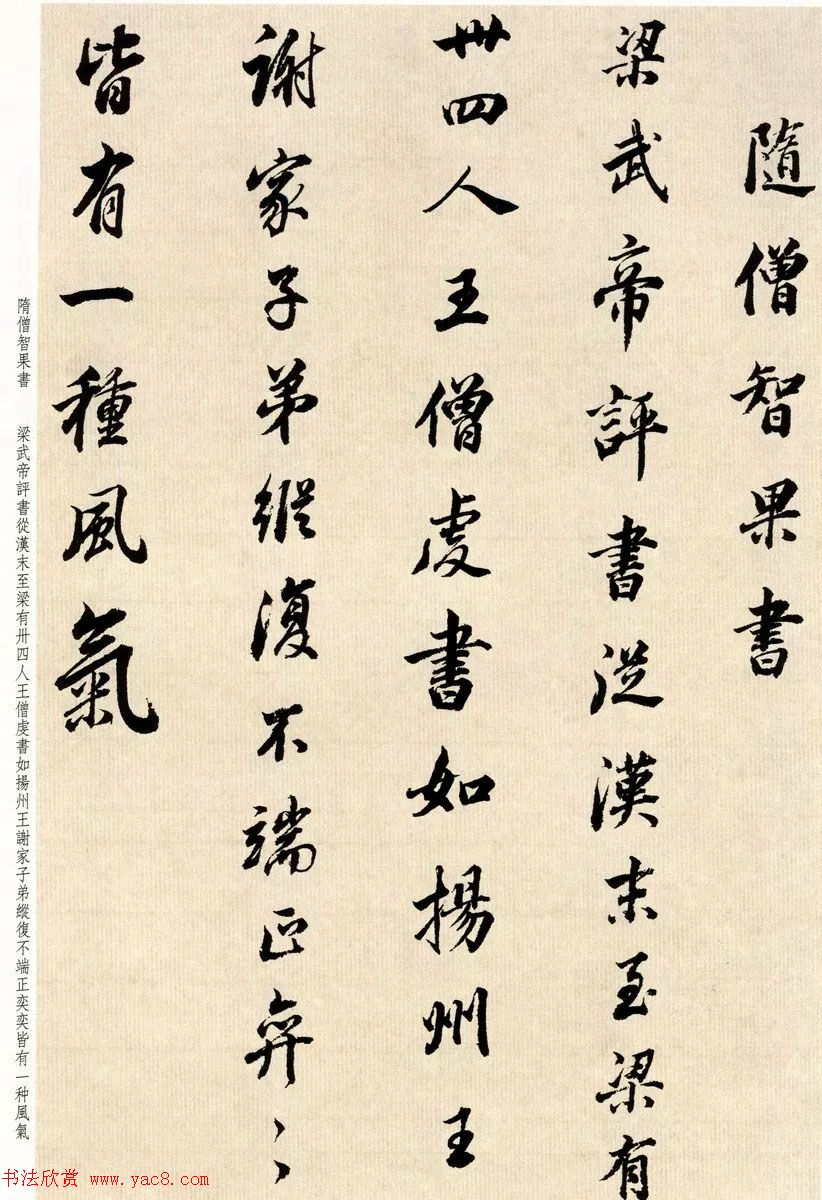 隨僧智果書
梁武帝評書從漢末至梁有
卅四人王僧虔書如揚州王
謝家子弟縱復不端正奕〻
皆有一種風氣
隋僧智果書　梁武帝評書從漢末至梁有卅四人王僧虔書如揚州王謝家子弟縱復不端正奕奕皆有一种風氣
书法欣赏 www.yac8.com